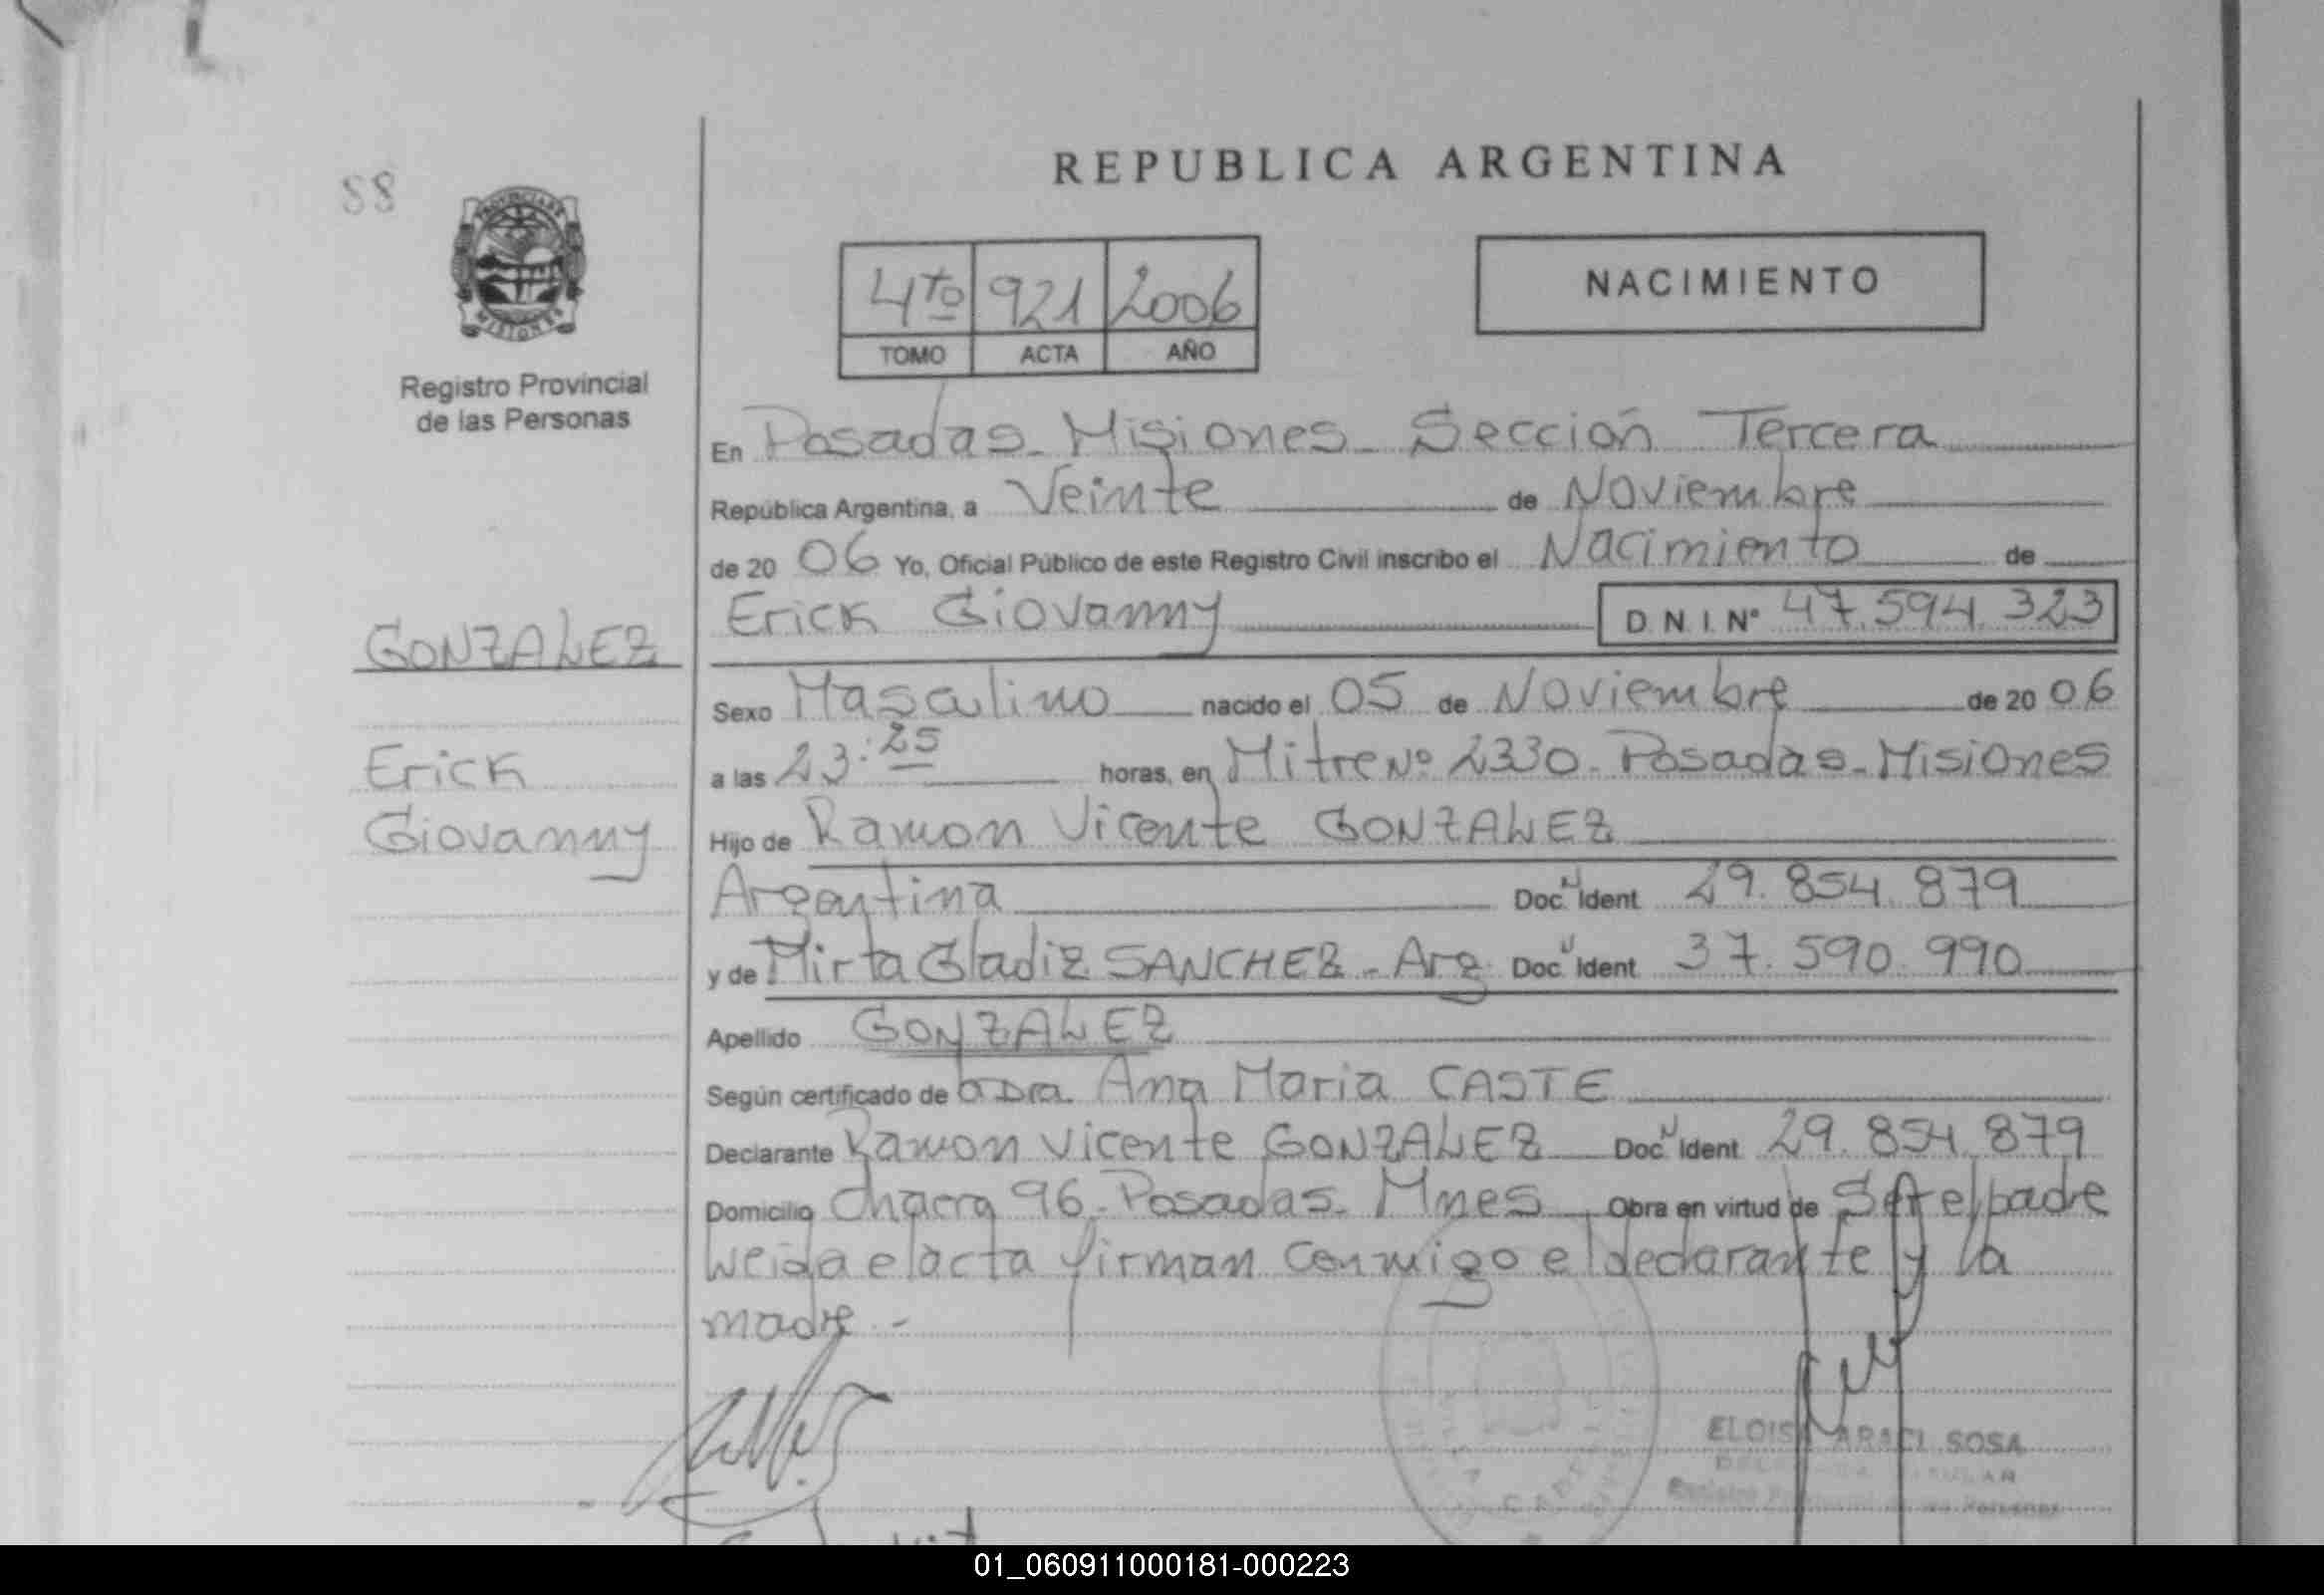 88
PROVINCIA DE
MISIONES
Registro Provincial
de las Personas
REPUBLICA ARGENTINA
4to 921 2006
TOMO ACTA AÑO
NACIMIENTO
En Posadas - Misiones - Sección Tercera
República Argentina, a Veinte de Noviembre
de 20 06 Yo, Oficial Público de este Registro Civil inscribo el Nacimiento de
Erick Giovanny D.N.I.Nº 47.594.323
GONZALEZ
Erick
Giovanny
Sexo Masculino nacido el 05 de Noviembre de 20 06
a las 23:25 horas, en Mitre Nº 2330 - Posadas - Misiones
Hijo de Ramon Vicente GONZALEZ
Argentina Doc. Ident 29.854.879
y de Mirta Gladiz SANCHEZ - Arg Doc. Ident 37.590.990
Apellido GONZALEZ
Según certificado de Dra. Ana Maria CASTE
Declarante Ramon Vicente GONZALEZ Doc. Ident 29.854.879
Domicilio Chacra 96 - Posadas - Mnes Obra en virtud de Ser el padre
Leida el acta firman conmigo el declarante y la
madre -
ELOISA ARACI SOSA
01_060911000181-000223